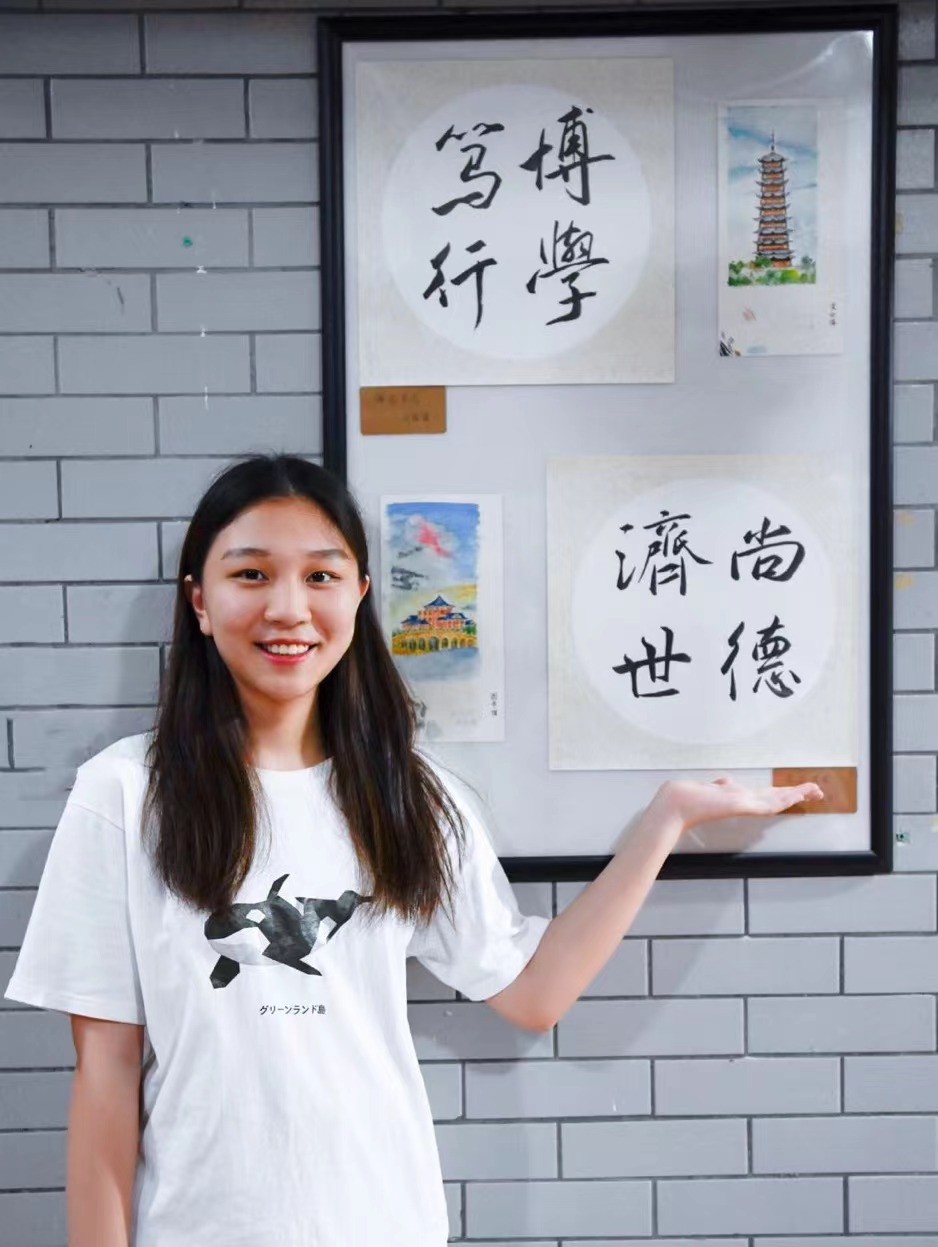 博學
篤行
尚德
濟世
グリーンランド島